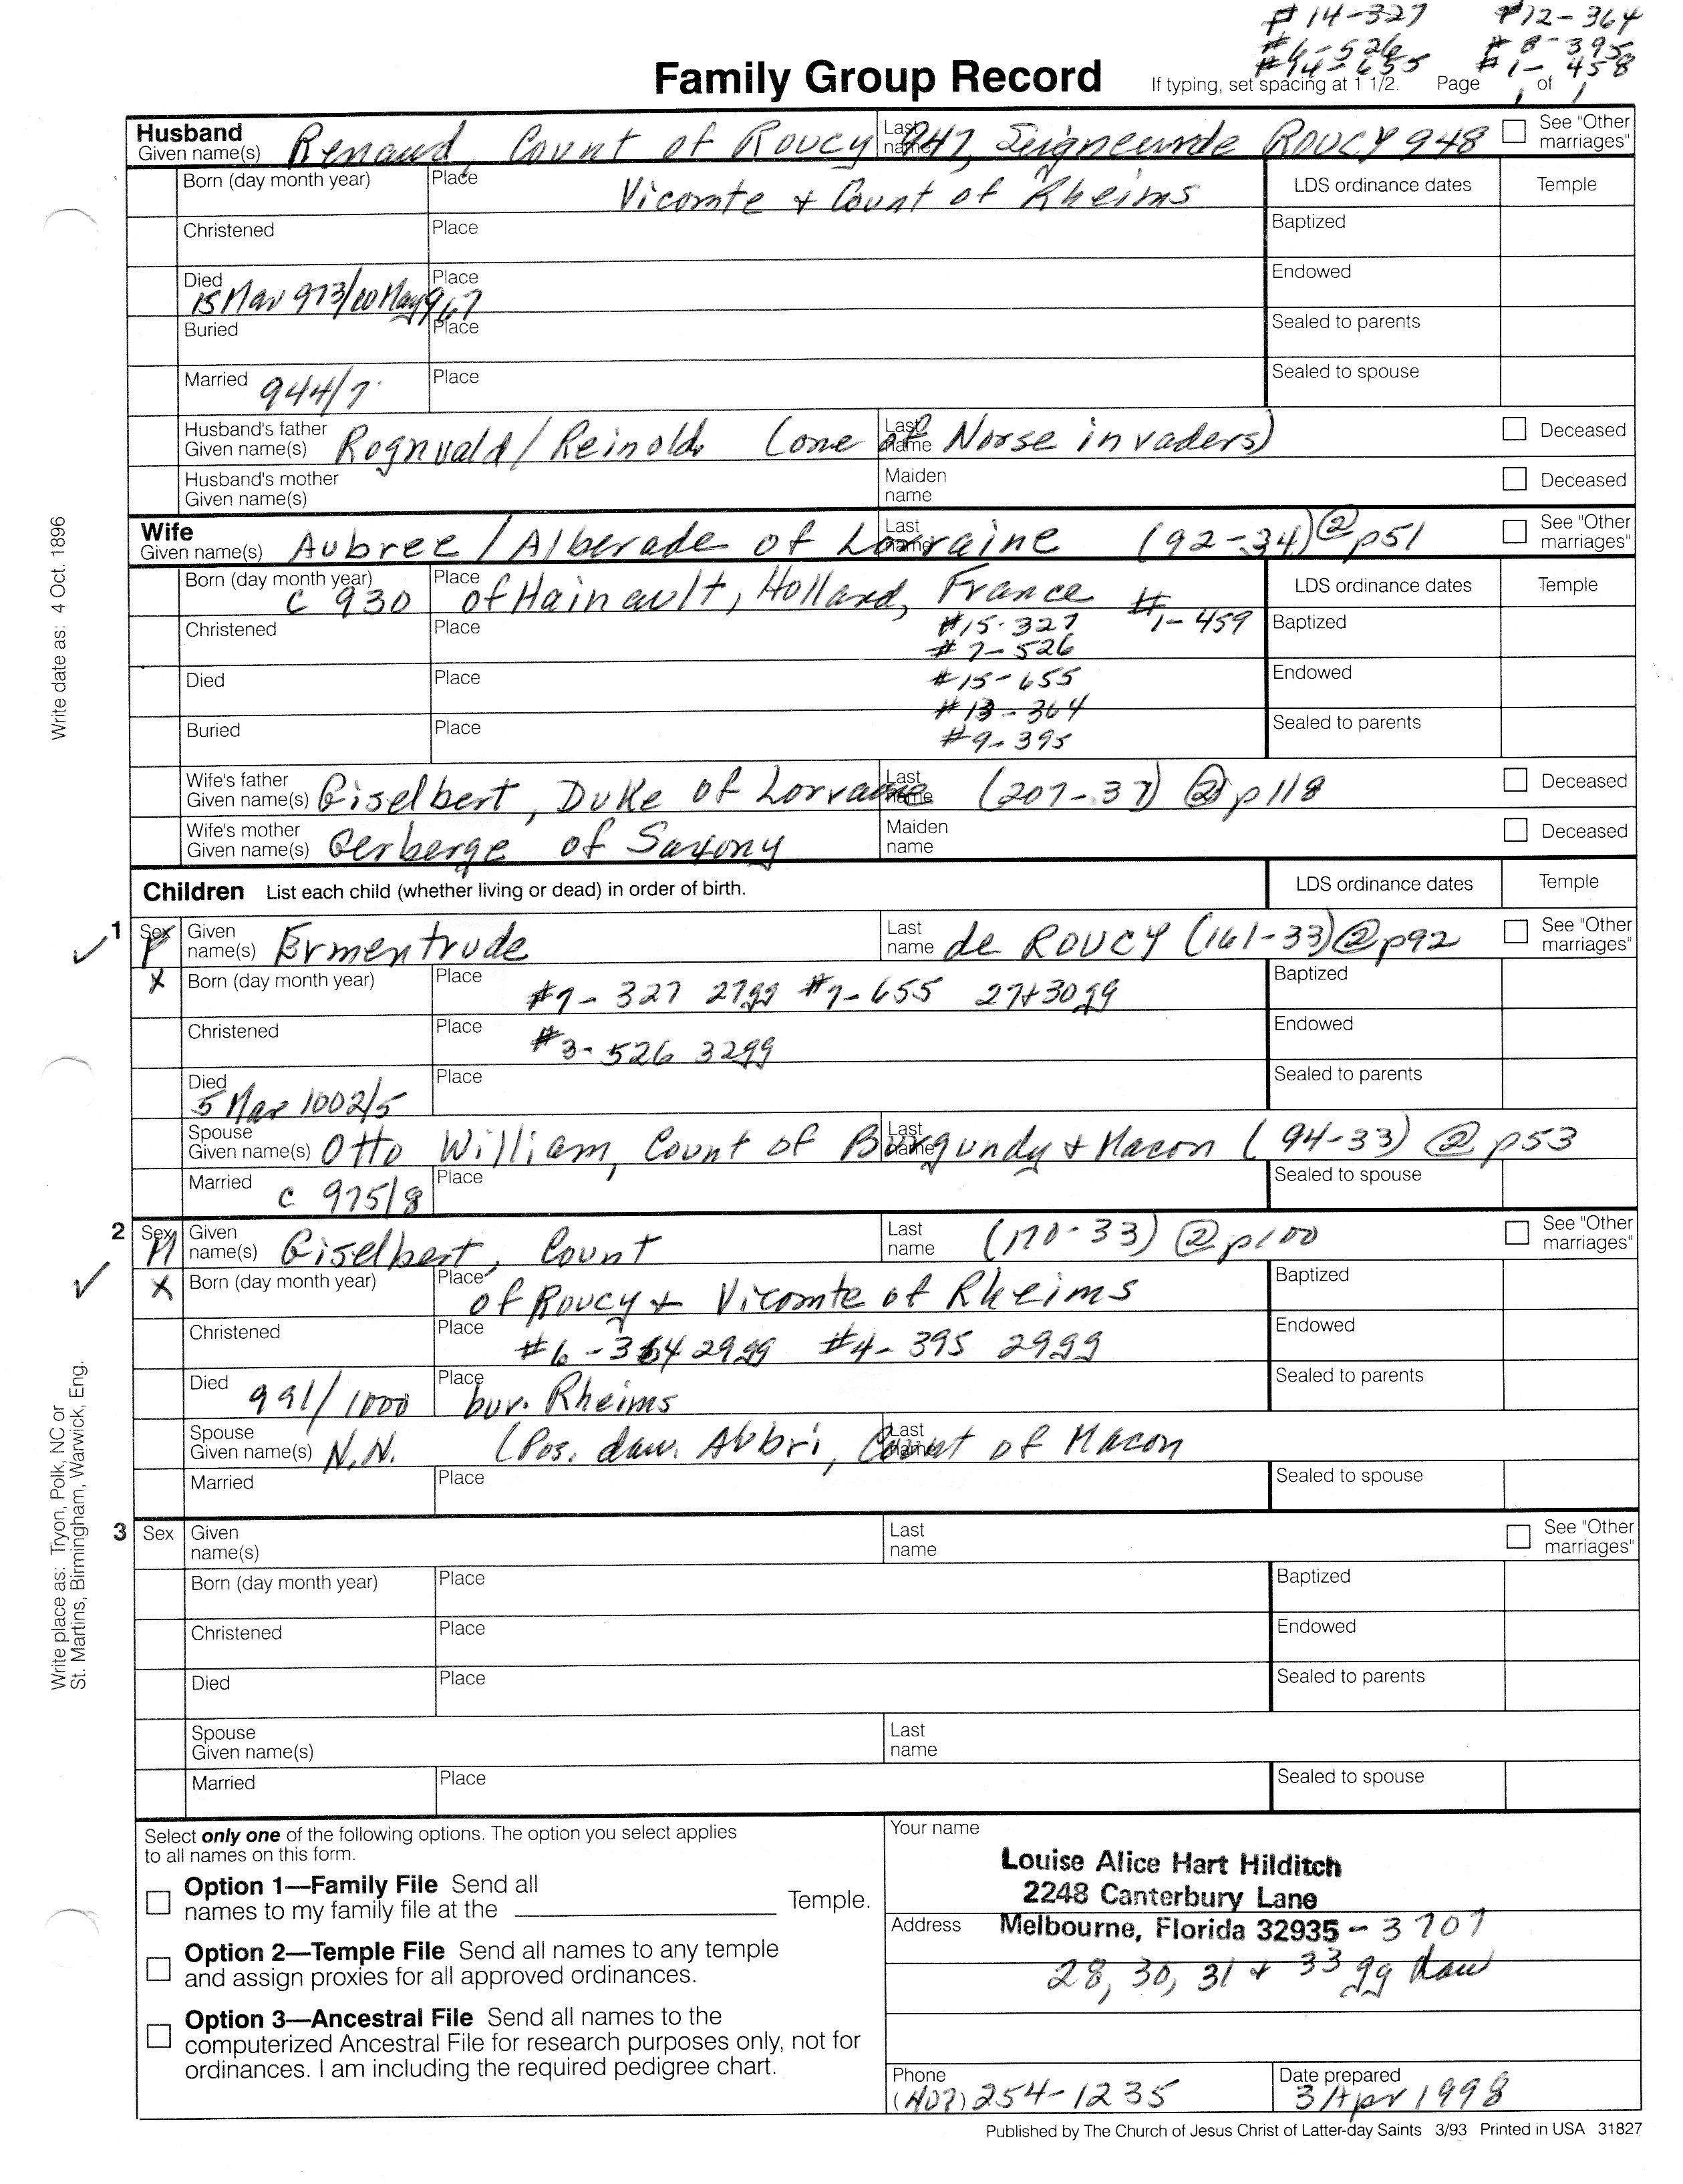 # 14-327 # 12-364
# 6-526 # 8-395
# 14-655 # 1-458
Family Group Record If typing, set spacing at 1 1/2. Page 1 of 1
Husband
Given name(s) Renaud, Count of Roucy Last name 947, Seigneurde Roucy 948 See "Other marriages"
Born (day month year) Place Vicomte + Count of Rheims LDS ordinance dates Temple
Christened Place Baptized
Died 15 Mar 973/10 May 967 Place Endowed
Buried Place Sealed to parents
Married 944/7 Place Sealed to spouse
Husband's father Given name(s) Rognvald/Reinold Last name (one of Norse invaders) Deceased
Husband's mother Given name(s) Maiden name Deceased
Wife
Given name(s) Aubree / Alberade of Lorraine Last name (92-34) @ p51 See "Other marriages"
Born (day month year) c 930 Place of Hainault, Holland, France #1-459 LDS ordinance dates Temple
Christened Place #15-327 Baptized
#7-526
Died Place #15-655 Endowed
#13-364
Buried Place #9-395 Sealed to parents
Wife's father Given name(s) Giselbert, Duke of Lorraine Last name (207-37) @ p118 Deceased
Wife's mother Given name(s) Gerberge of Saxony Maiden name Deceased
Children List each child (whether living or dead) in order of birth. LDS ordinance dates Temple
1 Sex F Given name(s) Ermentrude Last name de Roucy (161-33) @ p92 See "Other marriages"
X Born (day month year) Place #7-327 27gg #7-655 27+30gg Baptized
Christened Place #3-526 32gg Endowed
Died 5 Mar 1002/5 Place Sealed to parents
Spouse Given name(s) Otto William, Count of Burgundy + Macon Last name (94-33) @ p53
Married c 975/8 Place Sealed to spouse
2 Sex M Given name(s) Giselbert, Count Last name (170-33) @ p100 See "Other marriages"
X Born (day month year) Place of Roucy + Vicomte of Rheims Baptized
Christened Place #6-364 29gg #4-395 29gg Endowed
Died 991/1000 Place bur. Rheims Sealed to parents
Spouse Given name(s) N.N. (Pos. dau. Aubri, Count of Macon Last name
Married Place Sealed to spouse
3 Sex Given name(s) Last name See "Other marriages"
Born (day month year) Place Baptized
Christened Place Endowed
Died Place Sealed to parents
Spouse Given name(s) Last name
Married Place Sealed to spouse
Write date as: 4 Oct. 1896
Write place as: Tryon, Polk, NC or
St. Martins, Birmingham, Warwick, Eng.
Select only one of the following options. The option you select applies
to all names on this form.
Option 1—Family File Send all
names to my family file at the Temple.
Option 2—Temple File Send all names to any temple
and assign proxies for all approved ordinances.
Option 3—Ancestral File Send all names to the
computerized Ancestral File for research purposes only, not for
ordinances. I am including the required pedigree chart.
Your name
Louise Alice Hart Hilditch
2248 Canterbury Lane
Address Melbourne, Florida 32935-3707
28, 30, 31 + 33 gg dau
Phone (407) 254-1235 Date prepared 3 Apr 1998
Published by The Church of Jesus Christ of Latter-day Saints 3/93 Printed in USA 31827